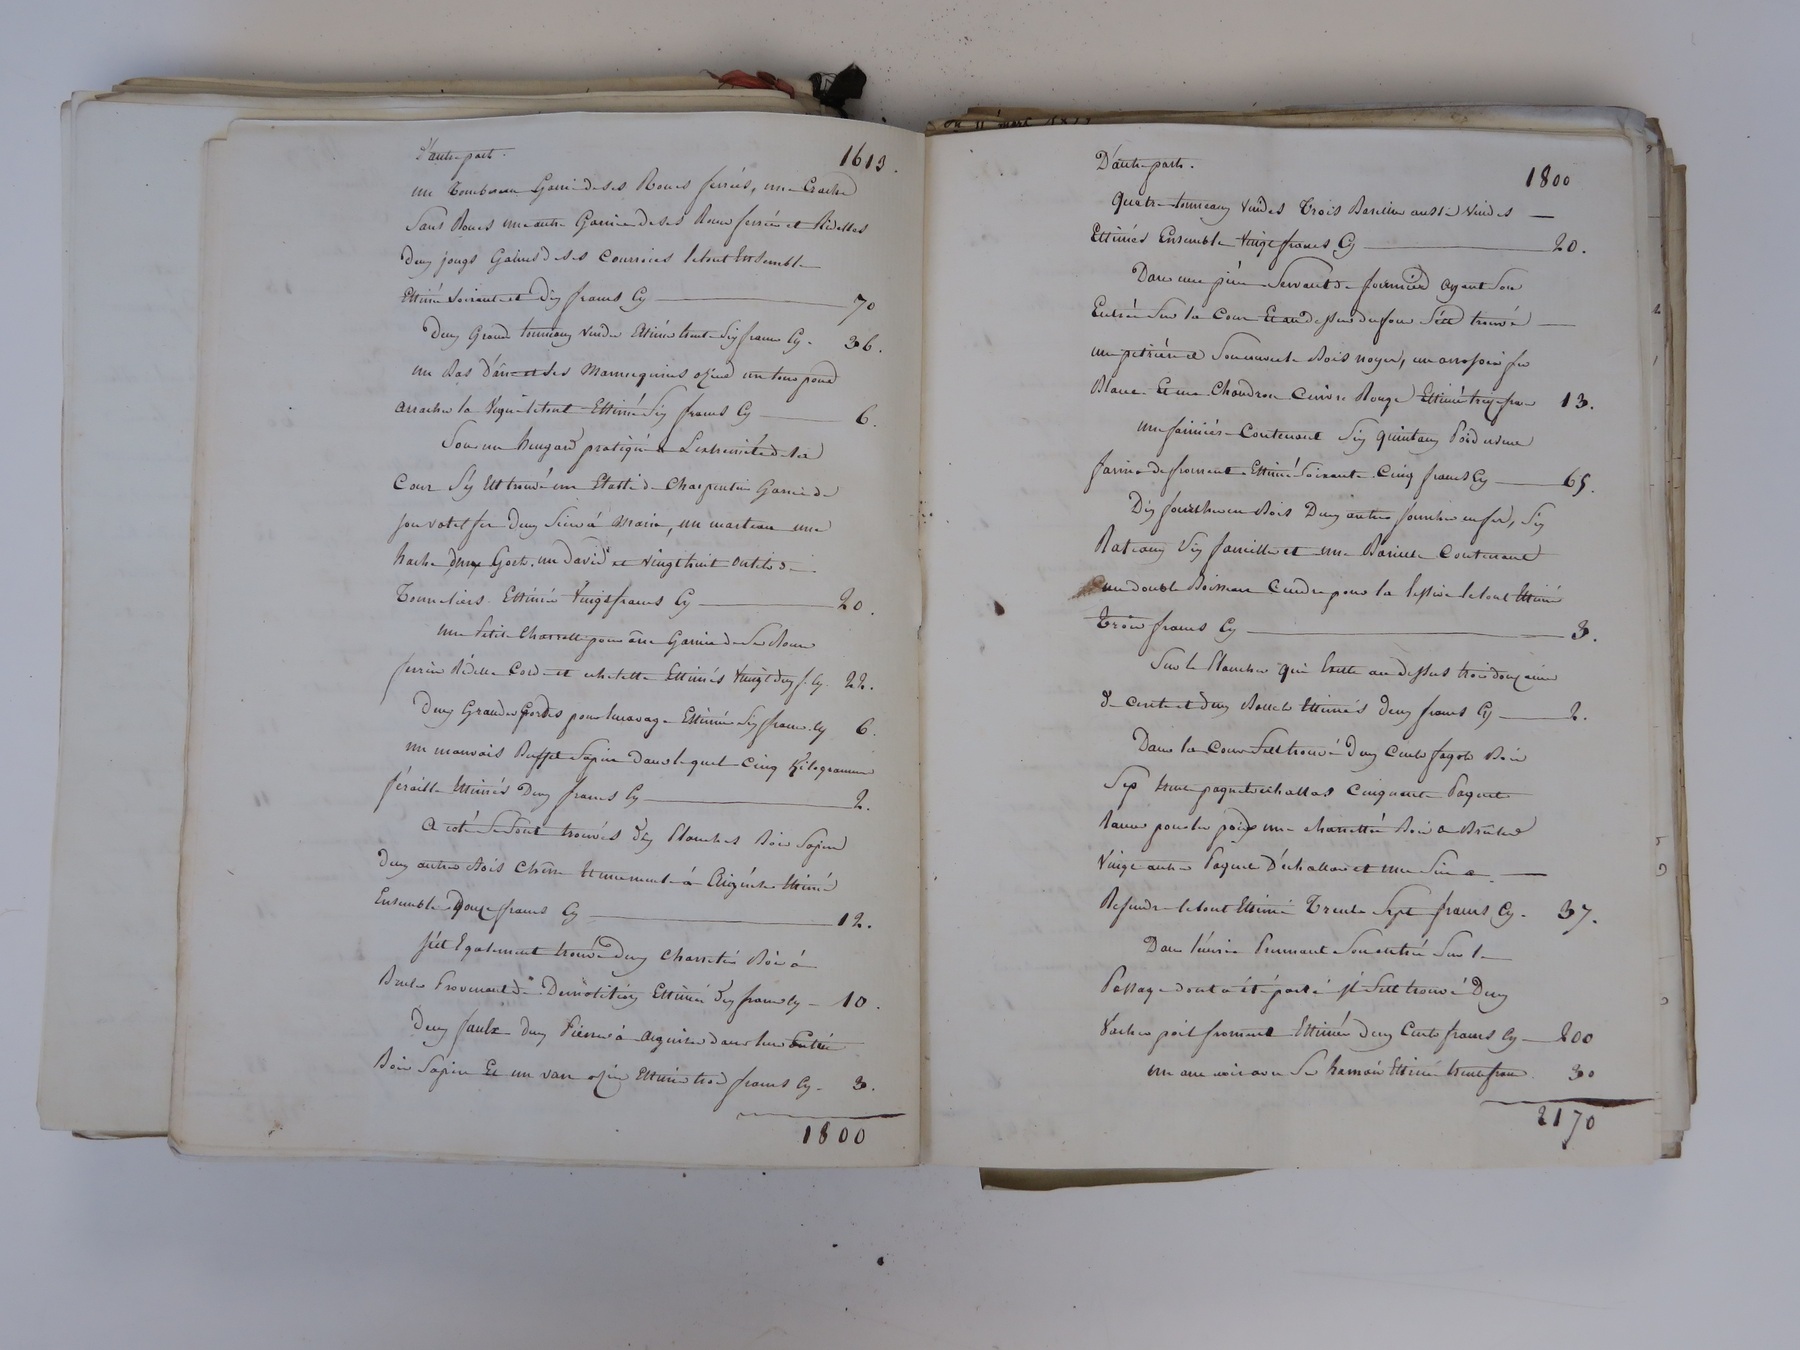 D'autre part. 1613.
un Tombereau Garni de ses Roues ferrés, une
Sans Roues une autre Garnie de ses Roues ferrées et Ridelles
Deux jougs Garnis de ses Courroies le tout Ensemble
Estimé Soixante et Dix francs Cy 70
Deux Grands tonneaux vuides Estimé trente Six francs Cy. 36.
un Bas D'âne et Ses Mannequins ozier un pour
arracher la Vigne le tout Estimé Six francs Cy 6.
Sous un hengard pratiqué à L'extremité de la
Cour S'y Est trouvé un Etabli de Charpentier Garni de
son valet fer Deux Scies à main, un marteau une
hache deux un David et vingt huit outils de
Tonneliers Estimés Vingt francs Cy 20.
une Petite Charrette pour âne Garnie de Ses Roues
ferrées Ridelles Corde et Estimés Vingt deux f. Cy. 22.
Deux Grandes pour Estimés Six francs Cy 6.
un mauvais Buffet Sapin dans lequel Cinq Kilogramme
féraille Estimés Deux francs Cy 2.
A coté Se Sont trouvés Dix Planches Bois Sapin
Deux autres Bois Chêne Estimé
Ensemble Douze francs Cy 12.
S'est Egalement trouvé deux Charretés Bois à
Bruler Provenant de Démolition Estimés Dix francs Cy 10.
Deux faulx deux Pierres à aiguiser dans leur
Bois Sapin Et un van ozier Estimés trois francs Cy. 3.
1800
D'autre part. 1800
Quatre tonneaux vuides Trois Barils aussi vuides
Estimés Ensemble Vingt francs Cy 20.
Dans une pièce Servant de fournier ayant Son
Entrée Sur la Cour Et au dessus du four S'est trouvé
une petrière et Son couvercle Bois noyer, un arrosoir fer
Blanc Et une Chaudron Cuivre Rouge Estimé treize fra 13.
une farinière Contenant Six quintaux Poid usuel
farine de froment Estimé Soixante Cinq francs Cy 65.
Dix fourches en Bois Deux autres fourches en fer, Six
Rateaux Six faucilles et une Barique Contenant
un double Boisseau Cendre pour la lessive le tout Estimé
Trois francs Cy 3.
Sur le Plancher qui Existe au dessus trois douzaine
de et deux Estimés deux francs Cy 2.
Dans la Cour S'est trouvé deux Cents fagots Bois
Sep trente paquets échallas Cinquante Paquets
pour les pois une charretée Bois à Brûler
Vingt autres Paquets D'échallas et une Scie a
Refendre le tout Estimé Trente Sept francs Cy. 37.
Dans l'écurie Prennant Son entré Sur le
Passage dont a été parlé il S'est trouvé Deux
Vaches poil froment Estimées deux Cents francs Cy 200
un ane noir avec Son harnois Estimé trente francs 30
2170